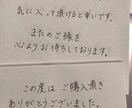 気に入って頂けると幸いです。
またのご縁を
心よりお待ちしております。
この度は ご購入頂き
ありがとうございました。